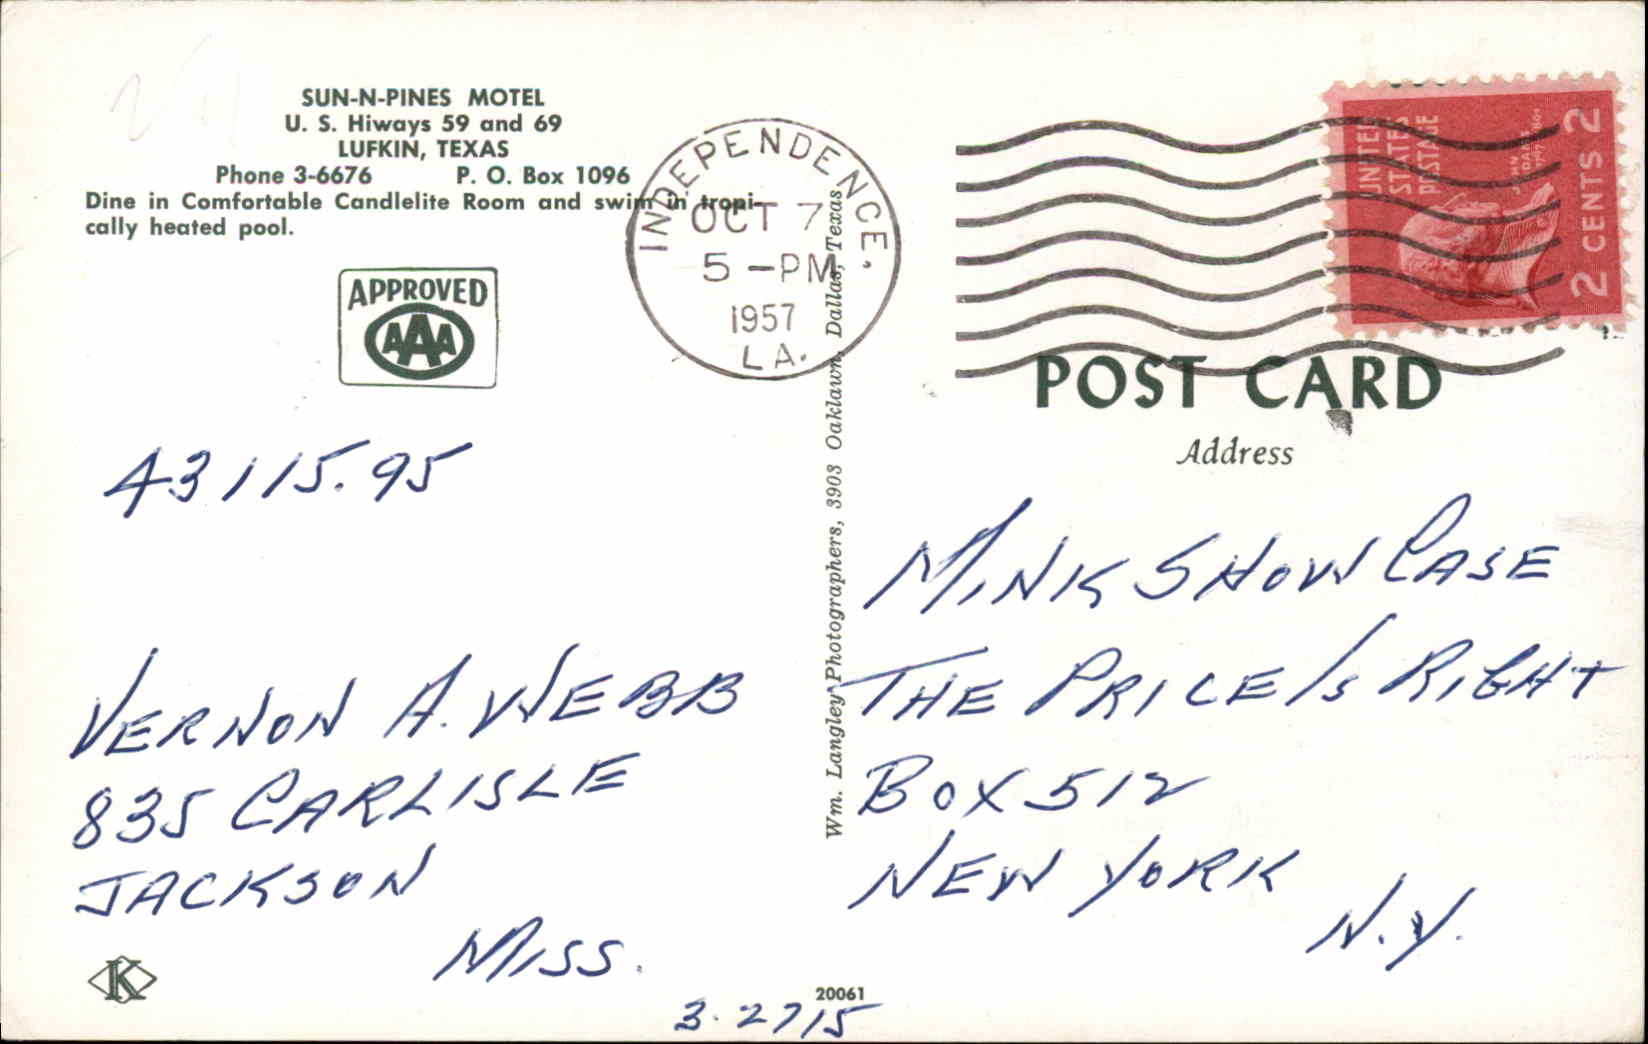 SUN-N-PINES MOTEL
U. S. Hiways 59 and 69
LUFKIN, TEXAS
Phone 3-6676 P. O. Box 1096
Dine in Comfortable Candlelite Room and swim in tropi-
cally heated pool.
APPROVED
AAA
INDEPENDENCE,
OCT 7
5 -PM
1957
LA.
UNITED
STATES
POSTAGE
JOHN
ADAMS
2 CENTS 2
POST CARD
Address
43115.95
VERNON A. WEBB
835 CARLISLE
JACKSON
MISS.
K
Wm. Langley Photographers, 3903 Oaklawn, Dallas, Texas
MINK SHOW CASE
THE PRICE IS RIGHT
BOX 512
NEW YORK
N.Y.
20061
3.2715